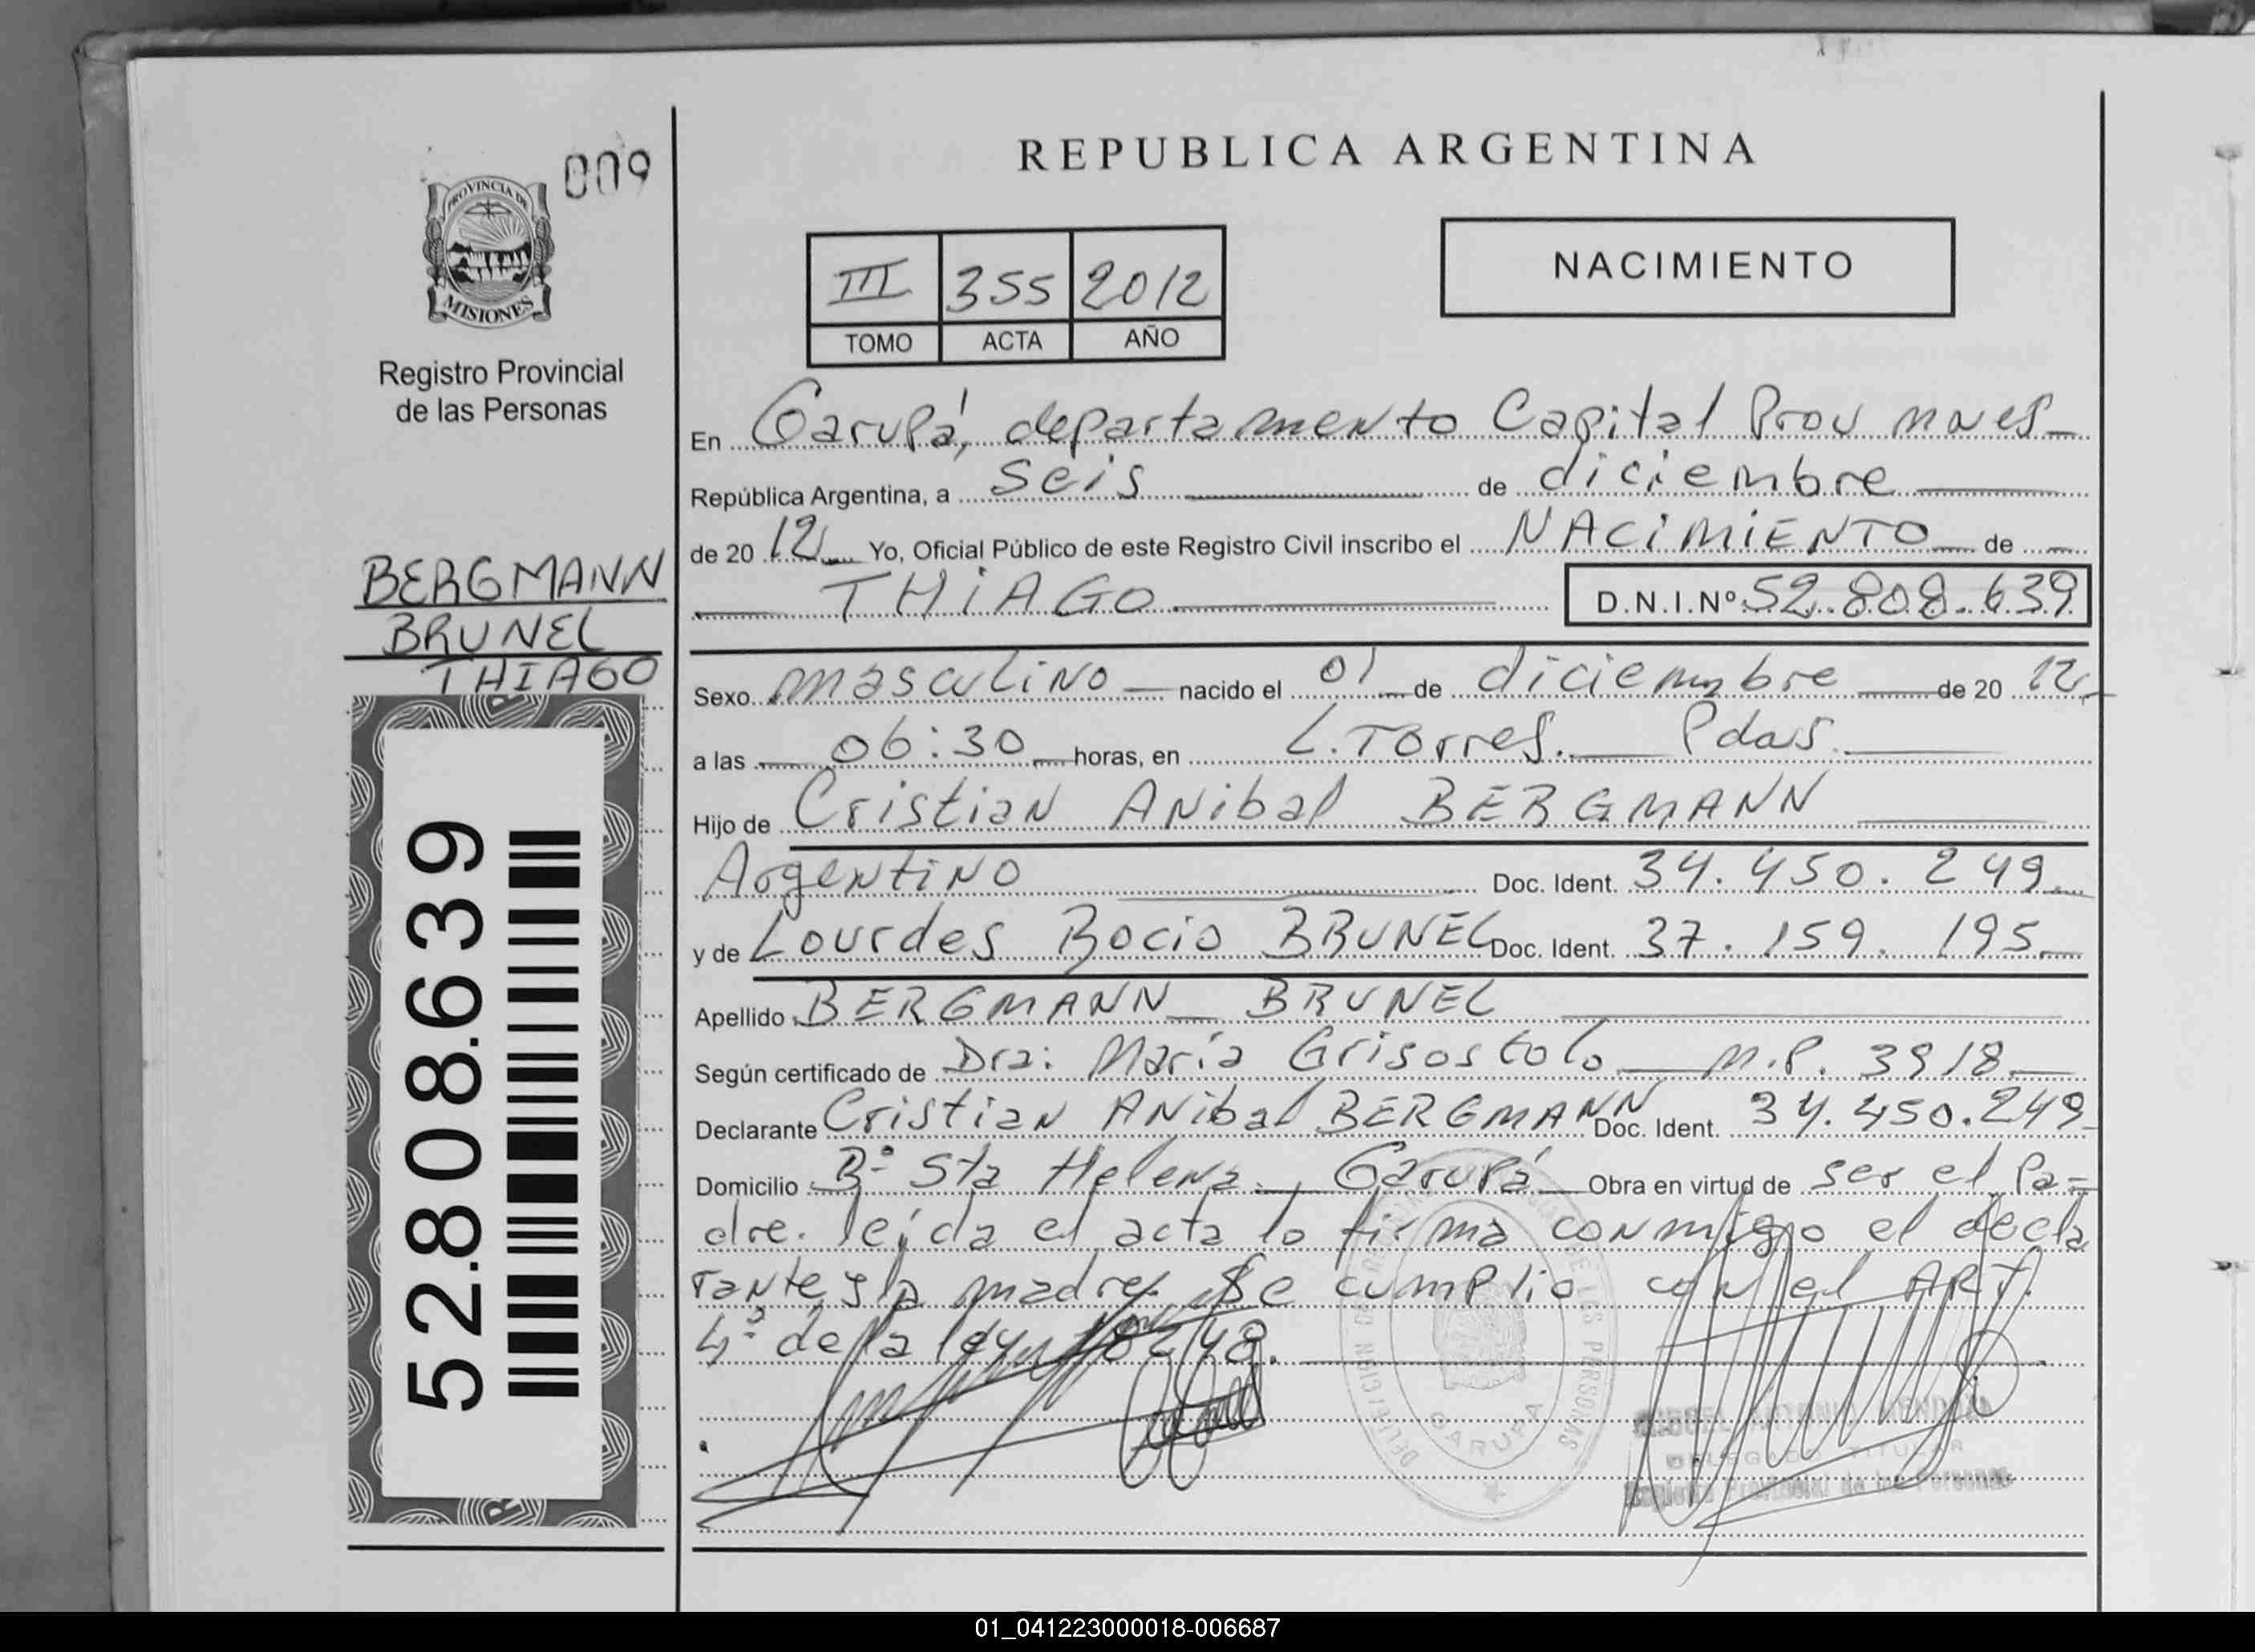 009
PROVINCIA DE
MISIONES
Registro Provincial
de las Personas
BERGMANN
BRUNEL
THIAGO
52.808.639
REPUBLICA ARGENTINA
III 355 2012
TOMO ACTA AÑO
NACIMIENTO
En Garupá, departamento Capital Prov Mnes
República Argentina, a seis de diciembre
de 20 12 Yo, Oficial Público de este Registro Civil inscribo el NACIMIENTO de
THIAGO D.N.I.Nº 52.808.639
Sexo masculino nacido el 01 de diciembre de 20 12
a las 06:30 horas, en L. Torres. Pdas.
Hijo de Cristian Anibal BERGMANN
Argentino Doc. Ident. 34.450.249
y de Lourdes Rocio BRUNEL Doc. Ident. 37.159.195
Apellido BERGMANN BRUNEL
Según certificado de Dra: María Grisostolo M.P. 3918
Declarante Cristian Anibal BERGMANN Doc. Ident. 34.450.249
Domicilio Bº Sta Helena. Garupá Obra en virtud de ser el Pa=
dre. leída el acta lo firma conmigo el decla
rante y la madre. Se cumplio con el ART.
4º de la ley 18248.
DELEGACION
DE LAS PERSONAS
GARUPA
DELEGADO TITULAR
Registro Provincial de las Personas
01_041223000018-006687